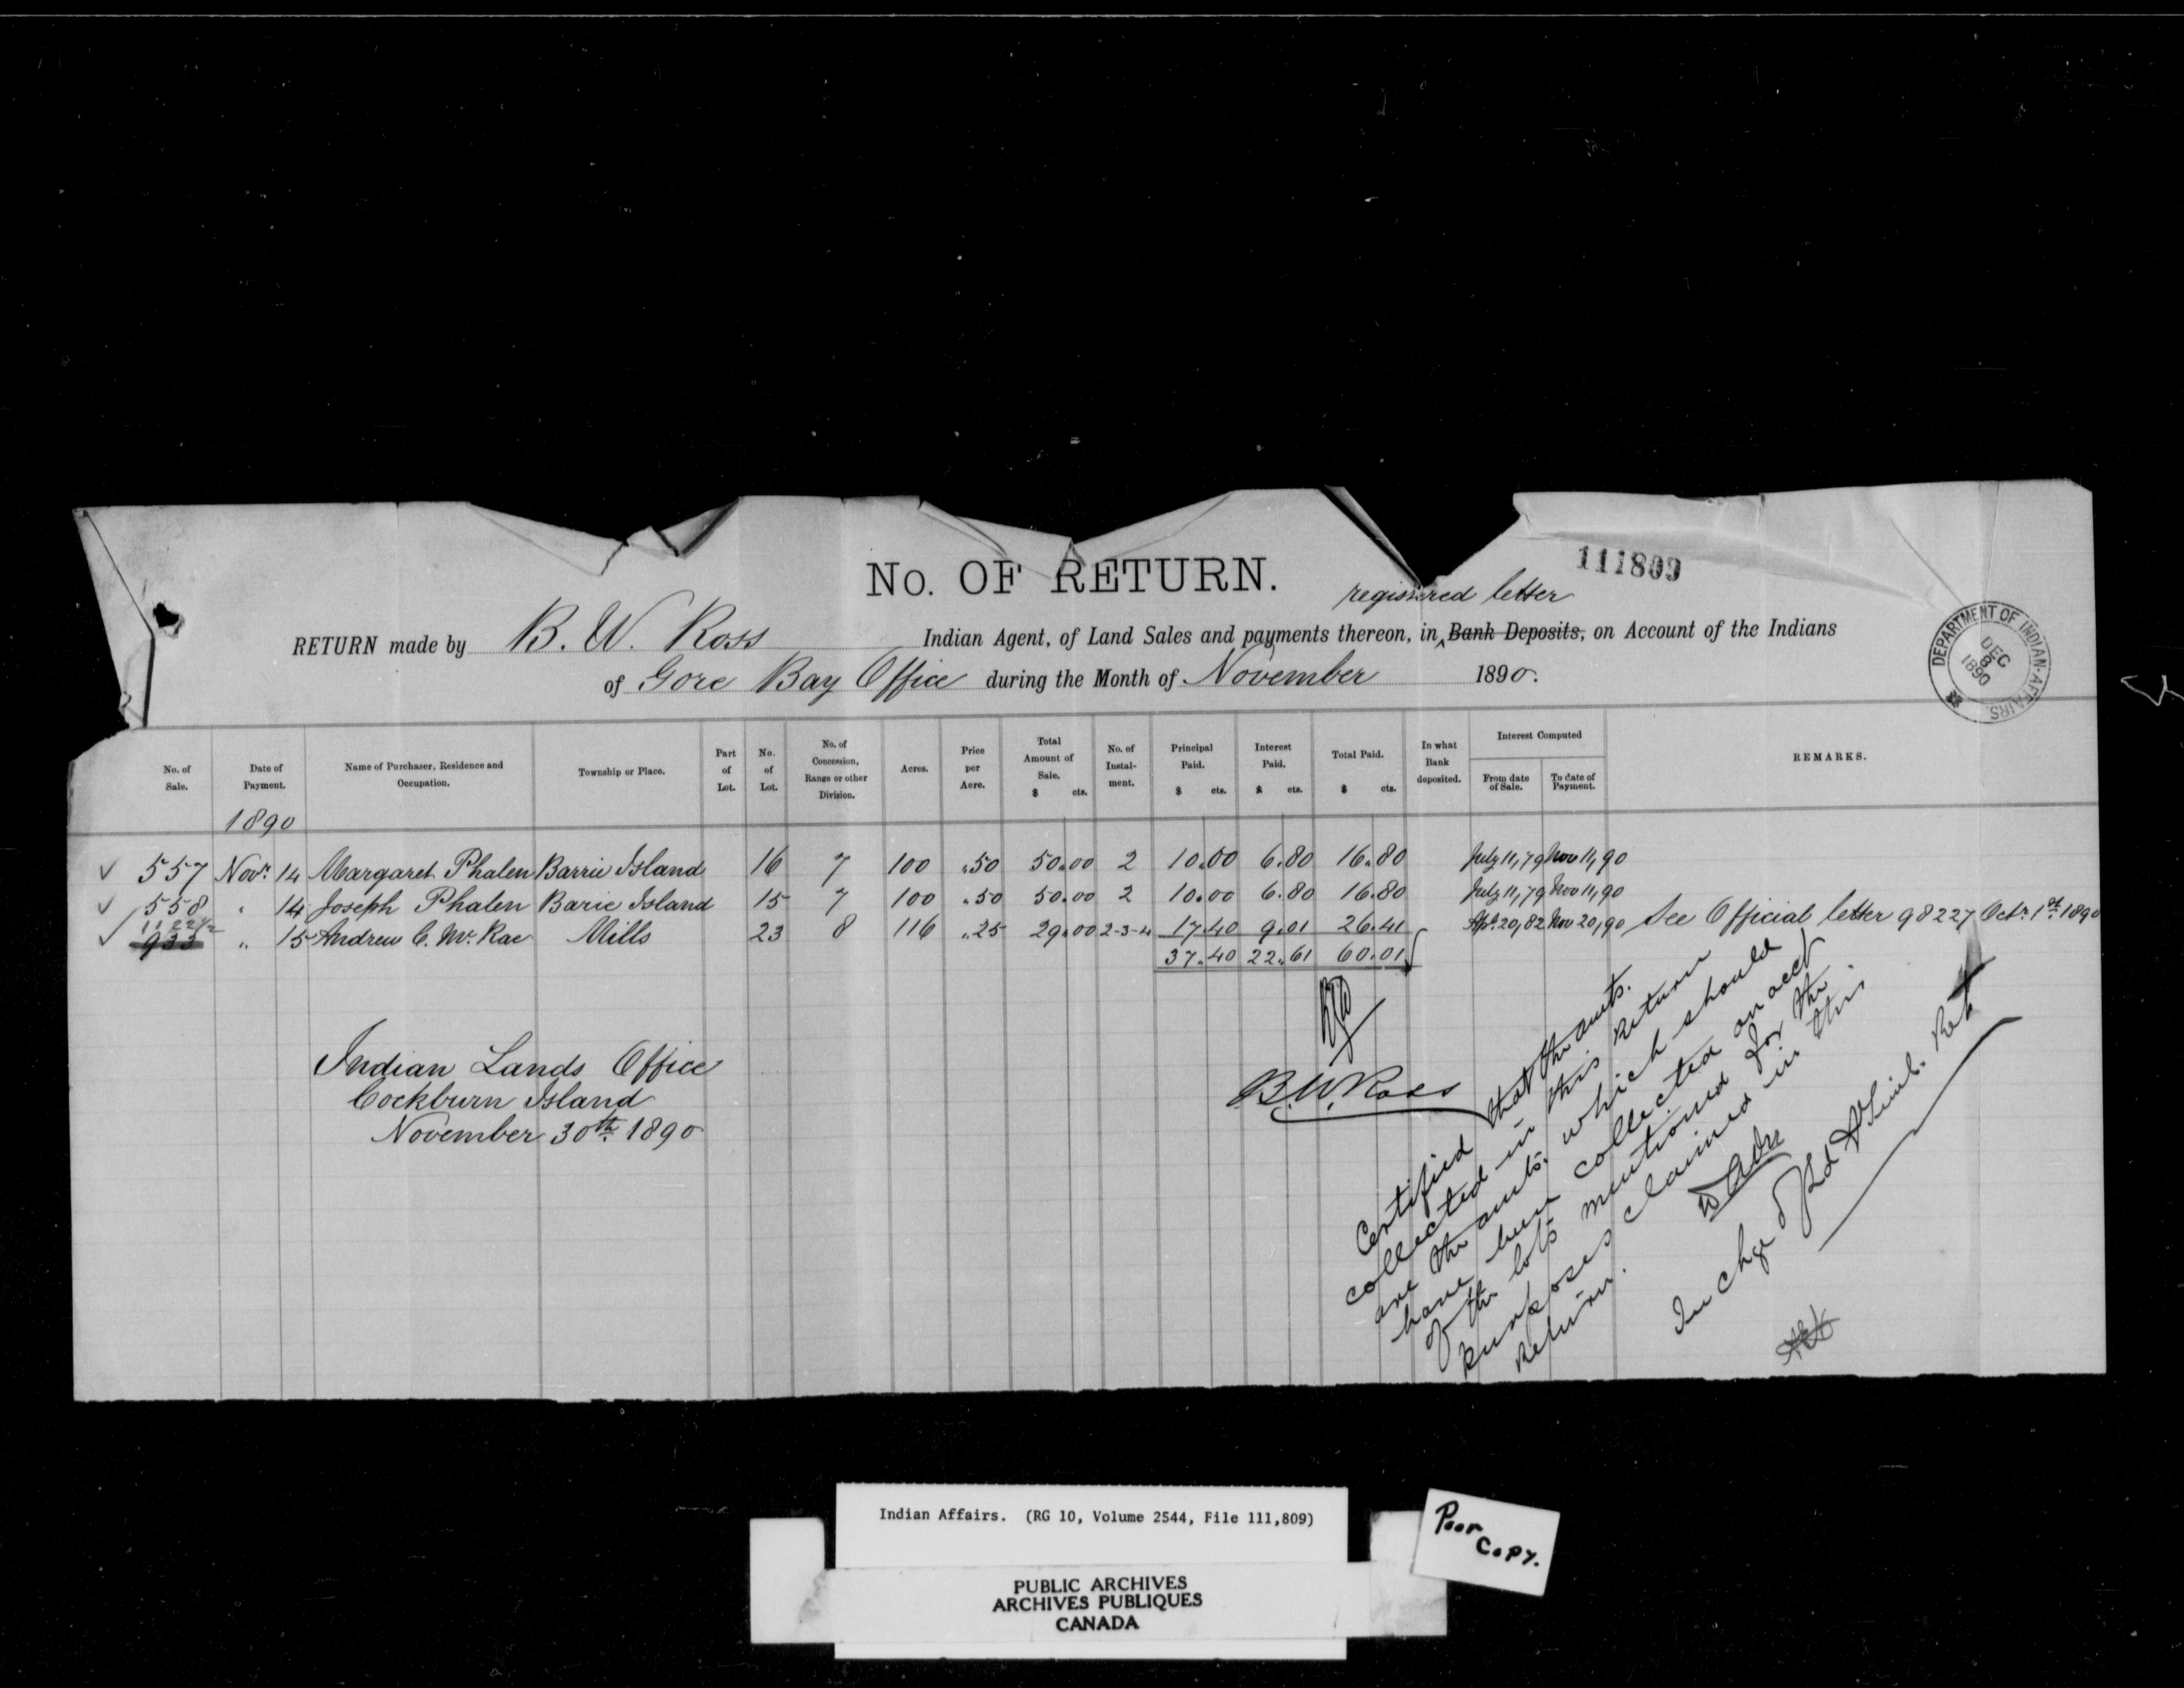 No. OF RETURN.
111809
registered letter
RETURN made by B. W. Ross Indian Agent, of Land Sales and payments thereon, in ^ Bank Deposits, on Account of the Indians
of Gore Bay Office during the Month of November 1890.
DEPARTMENT OF INDIAN AFFAIRS
DEC 8 1890
No. of Sale. Date of Payment. Name of Purchaser, Residence and Occupation. Township or Place. Part of Lot. No. of Lot. No. of Concession, Range or other Division. Acres. Price per Acre. Total Amount of Sale. $ cts. No. of Instal-ment. Principal Paid. $ cts. Interest Paid. $ cts. Total Paid. $ cts. In what Bank deposited. Interest Computed From date of Sale. To date of Payment. REMARKS.
1890
557 Novr. 14 Margaret Phalen Barrie Island 16 7 100 .50 50.00 2 10.00 6.80 16.80 July 11,79 Nov 11,90
558 " 14 Joseph Phalen Barie Island 15 7 100 .50 50.00 2 10.00 6.80 16.80 July 11,79 Nov 11,90
933 " 15 Andrew C. Mc. Rae Mills 23 8 116 .25 29.00 2-3-4 17.40 9.01 26.41 Apl. 20,82 Nov 20,90 See Official letter 98227 Octr 1st 1890
37.40 22.61 60.01
Indian Lands Office
Cockburn Island
November 30th 1890
B. W. Ross
Certified that the amts.
collected in this Return
are the amts. which should
have been collected on acct
of the lots mentioned for the
purposes claimed in this
Return.
In chge of Ld
Indian Affairs. (RG 10, Volume 2544, File 111,809)
PUBLIC ARCHIVES
ARCHIVES PUBLIQUES
CANADA
Poor
Copy.